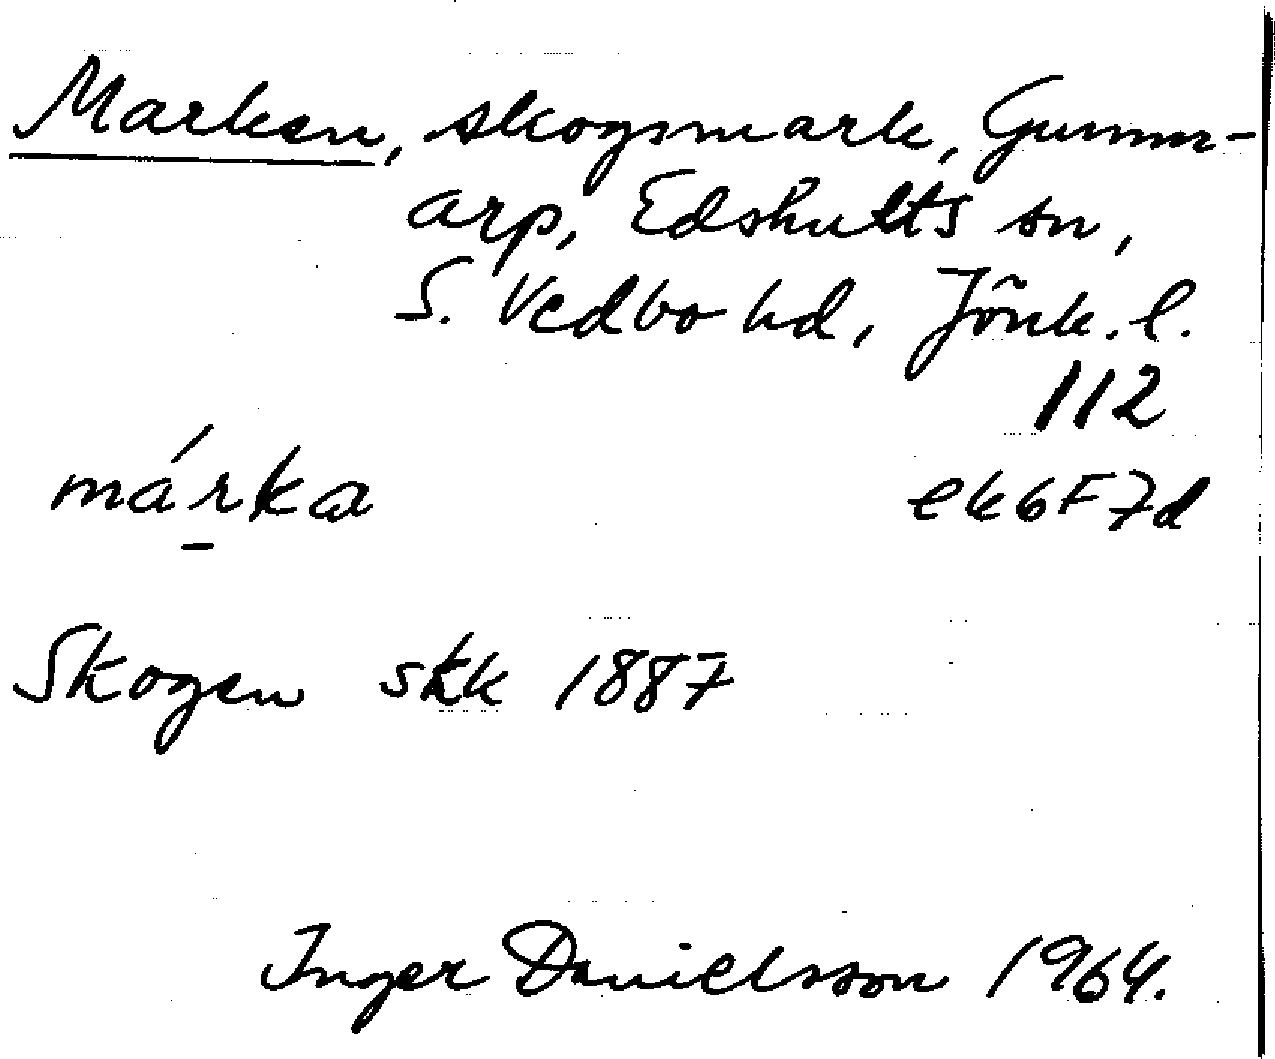 Marken, skogsmark, Gunnn-
arp, Edshults sn,
S. Vedbo hd, Jönk. l.
112
márka ek6F7d
Skogen skk 1887
Inger Danielsson 1964.